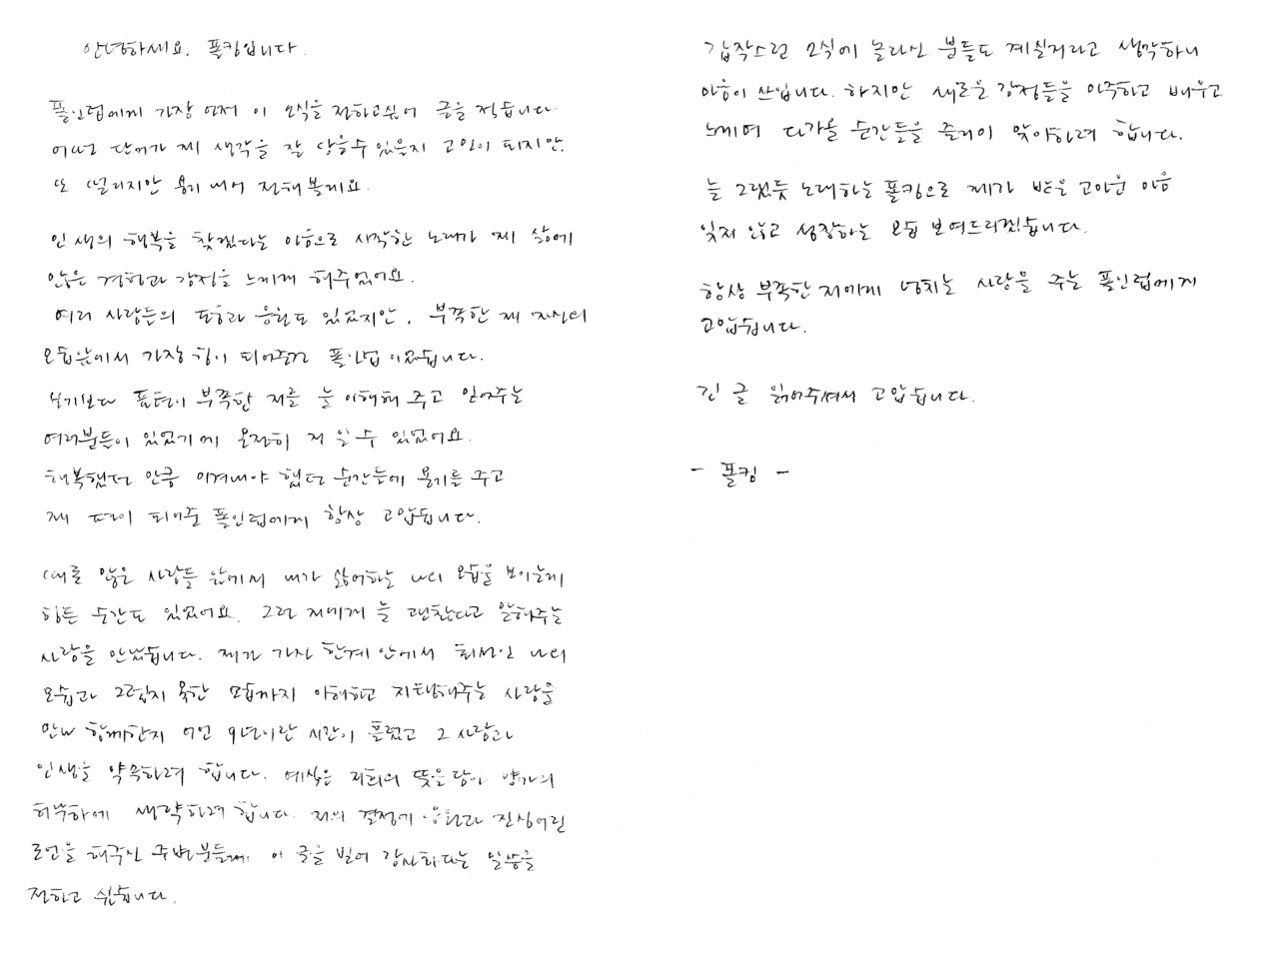 안녕하세요. 폴킴입니다.
폴인럽에게 가장 먼저 이 소식을 전하고싶어 글을 적습니다.
어떤 단어가 제 생각을 잘 담을수 있을지 고민이 되지만,
또 떨리지만 용기 내어 전해볼게요.
인생의 행복을 찾겠다는 마음으로 시작한 노래가 제 삶에
많은 경험과 감정을 느끼게 해주었어요.
여러 사람들의 도움과 응원도 있었지만, 부족한 제 자신의
모습앞에서 가장 힘이 되어준건 폴인럽 이었습니다.
보기보다 표현이 부족한 저를 늘 이해해 주고 믿어주는
여러분들이 있었기에 온전히 저 일 수 있었어요.
행복했던 만큼 이겨내야 했던 순간들에 용기를 주고
제 편이 되어준 폴인럽에게 항상 고맙습니다.
때론 많은 사람들 앞에서 내가 싫어하는 나의 모습을 보이는게
힘든 순간도 있었어요. 그런 저에게 늘 괜찮다고 말해주는
사람을 만났습니다. 제가 가진 한계 안에서 최선인 나의
모습과 그렇지 못한 모습까지 이해하고 지탱해주는 사람을
만나 함께한지 어언 9년이란 시간이 흘렀고 그 사람과
인생을 약속하려 합니다. 예식은 저희의 뜻을 담아 양가의
허락하에 생략하려 합니다. 저의 결정에 응원과 진심어린
조언을 해주신 주변분들께 이 글을 빌어 감사하다는 말씀을
전하고 싶습니다.
갑작스런 소식에 놀라신 분들도 계실거라고 생각하니
마음이 쓰입니다. 하지만 새로운 감정들을 마주하고 배우고
느끼며 다가올 순간들을 즐거이 맞이하려 합니다.
늘 그랬듯 노래하는 폴킴으로 제가 받은 고마운 마음
잊지 않고 성장하는 모습 보여드리겠습니다.
항상 부족한 저에게 넘치는 사랑을 주는 폴인럽에게
고맙습니다.
긴 글 읽어주셔서 고맙습니다.
- 폴킴 -